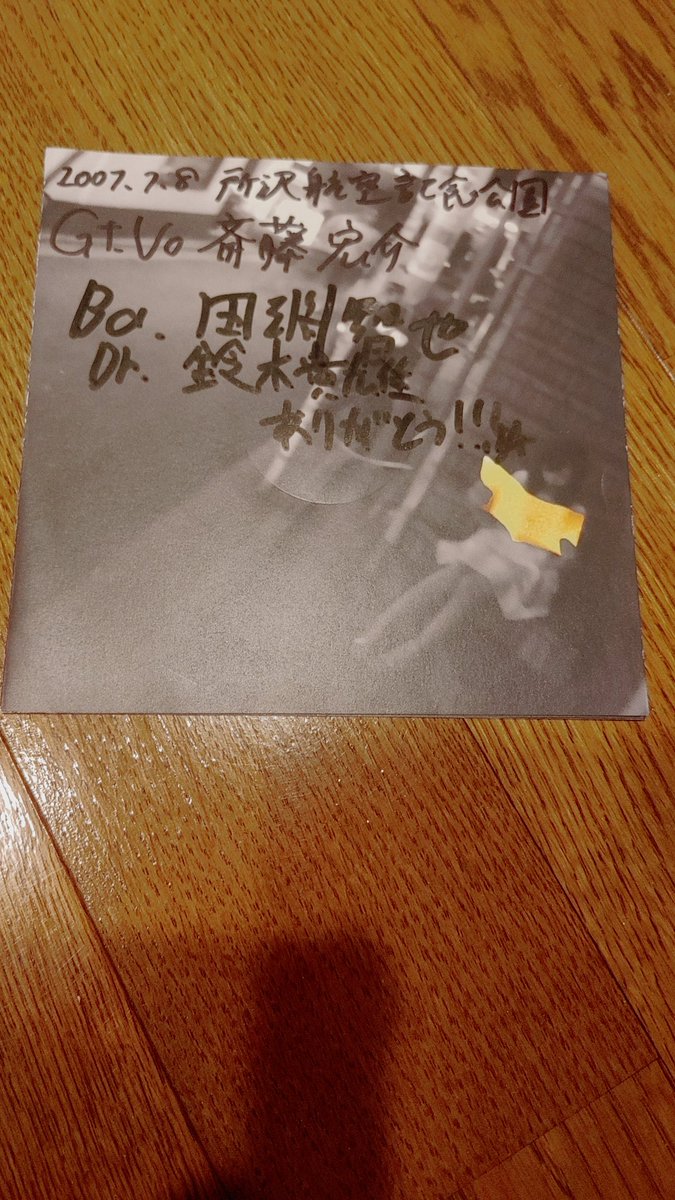 2007.7.8 所沢航空記念公園
Gt.Vo 斎藤宏介
Ba. 田淵智也
Dr. 鈴木貴雄
ありがとう!!!